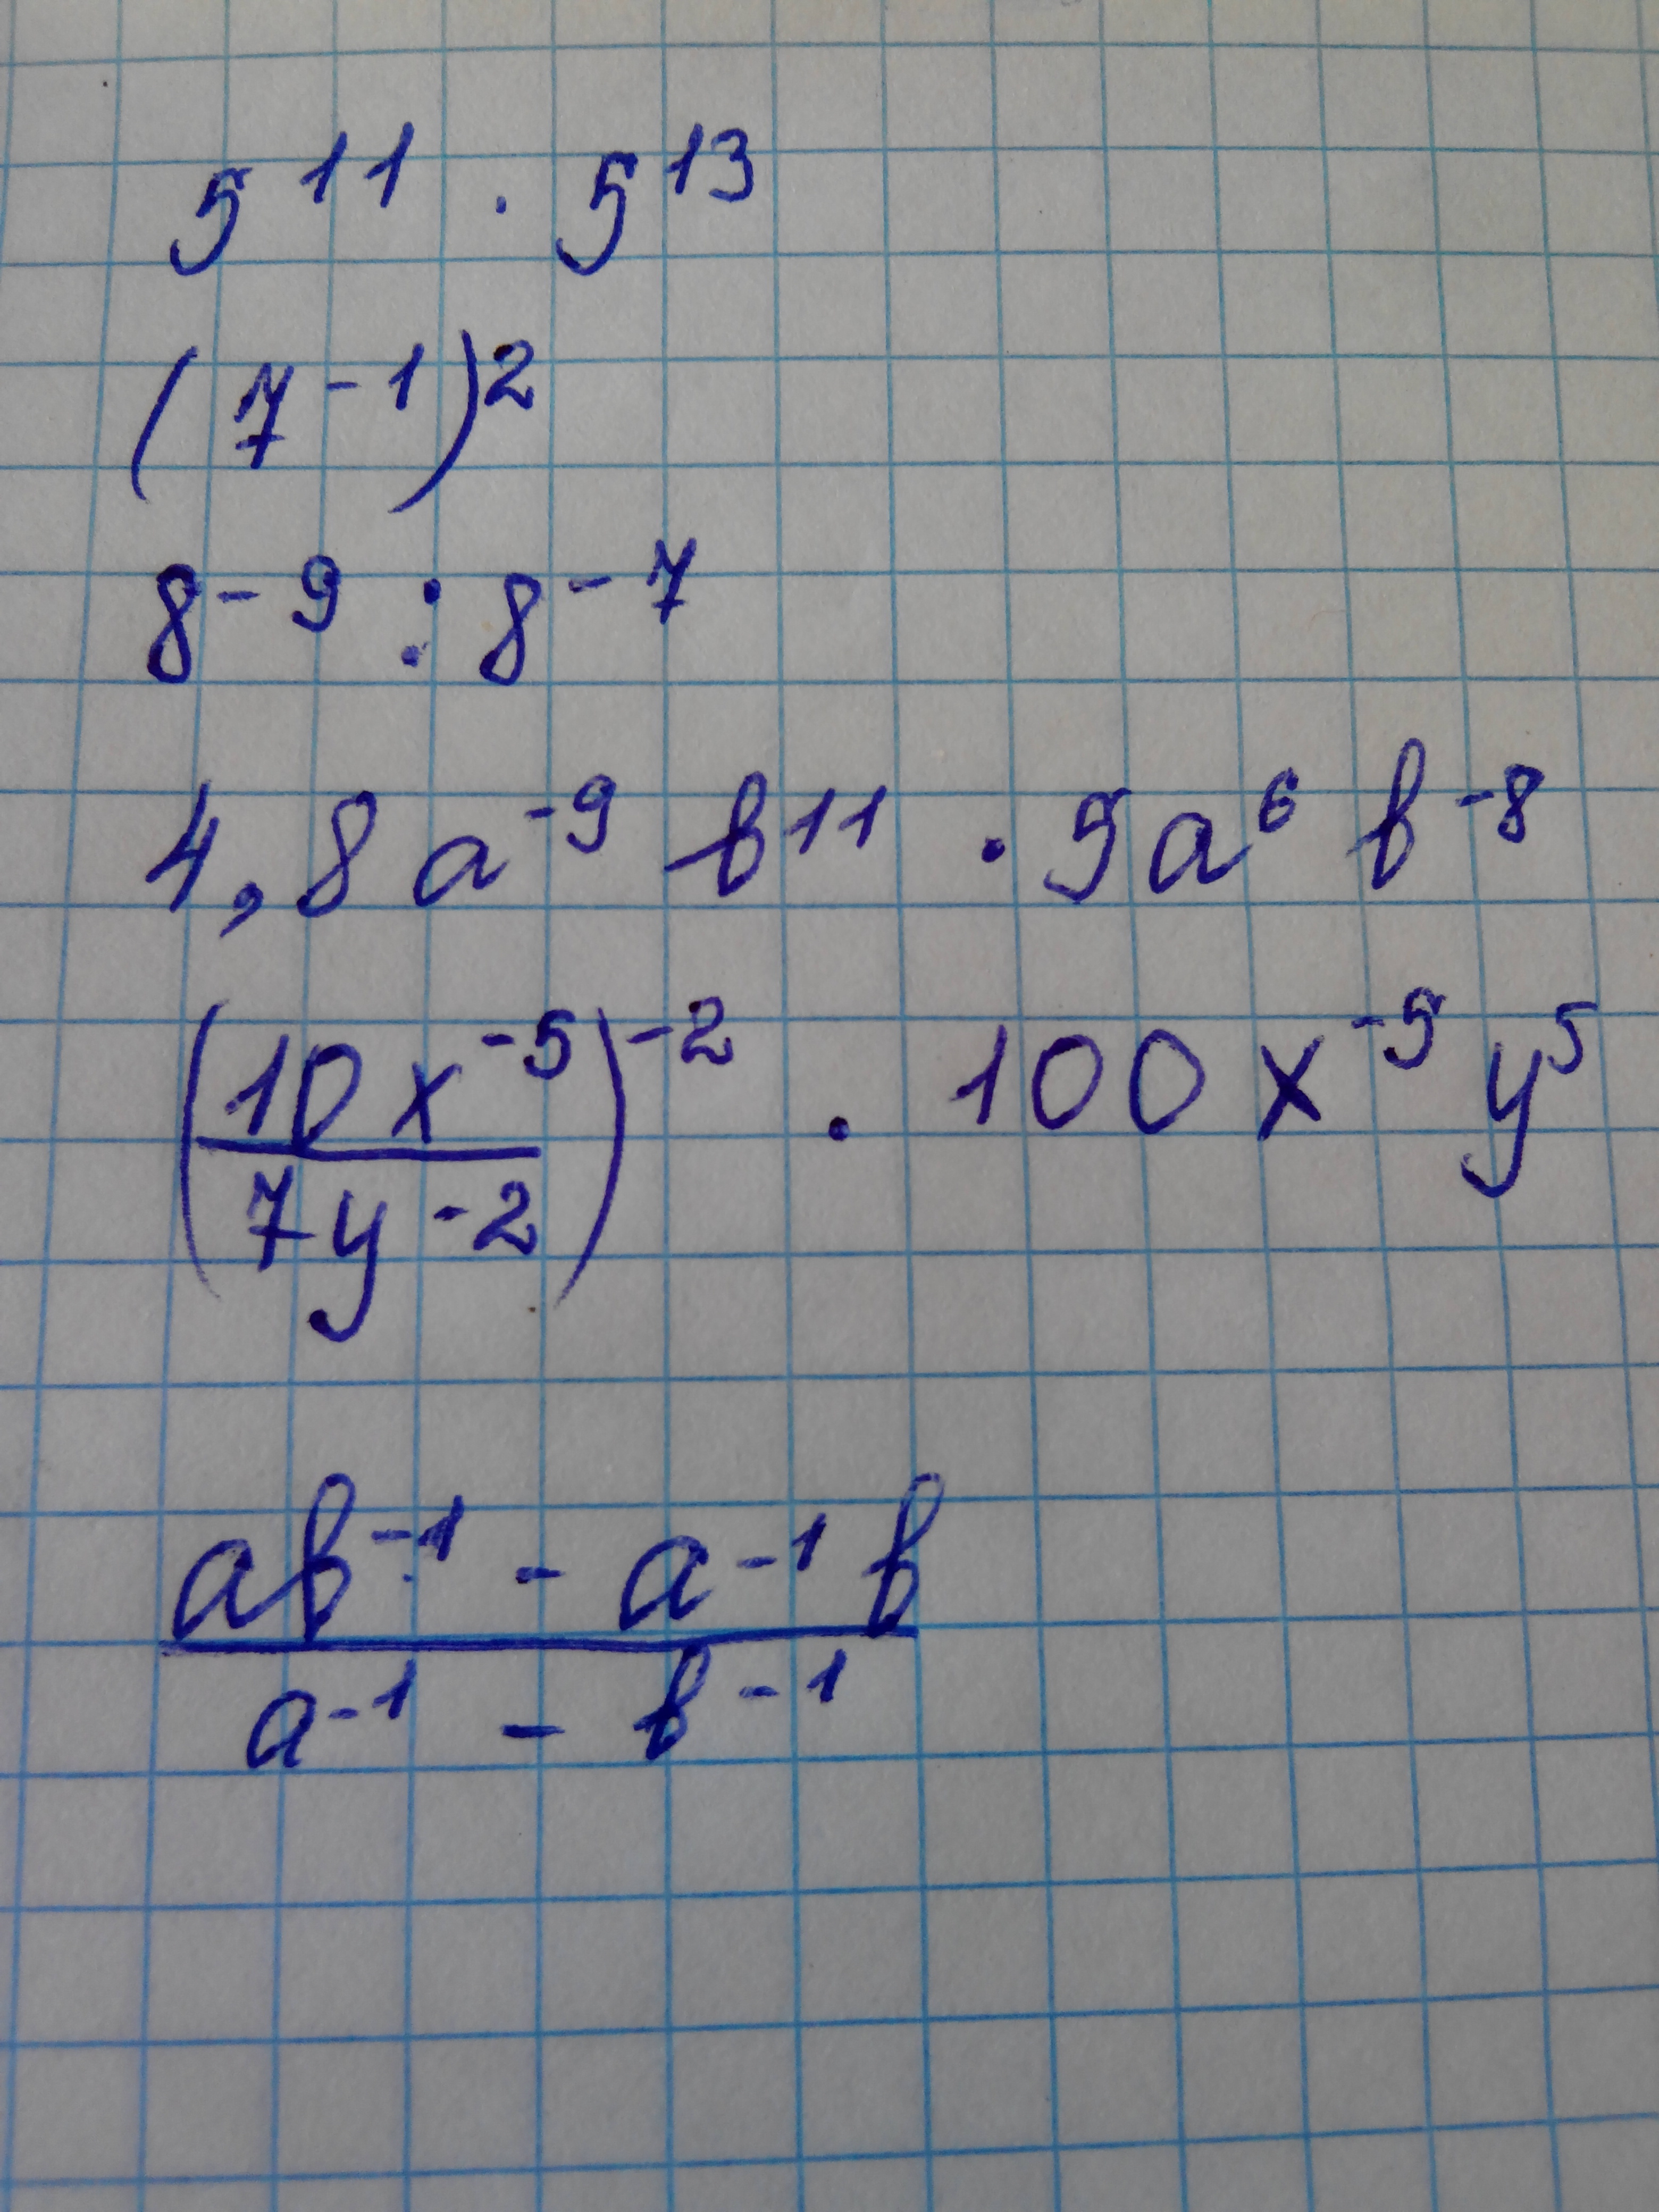 5¹¹ · 5¹³
(7⁻¹)²
8⁻⁹ : 8⁻⁷
4,8a⁻⁹ b¹¹ · 5a⁶ b⁻⁸
(10x⁻⁵ / 7y⁻²)⁻² · 100x⁻⁵y⁵
(ab⁻¹ - a⁻¹b) / (a⁻¹ - b⁻¹)